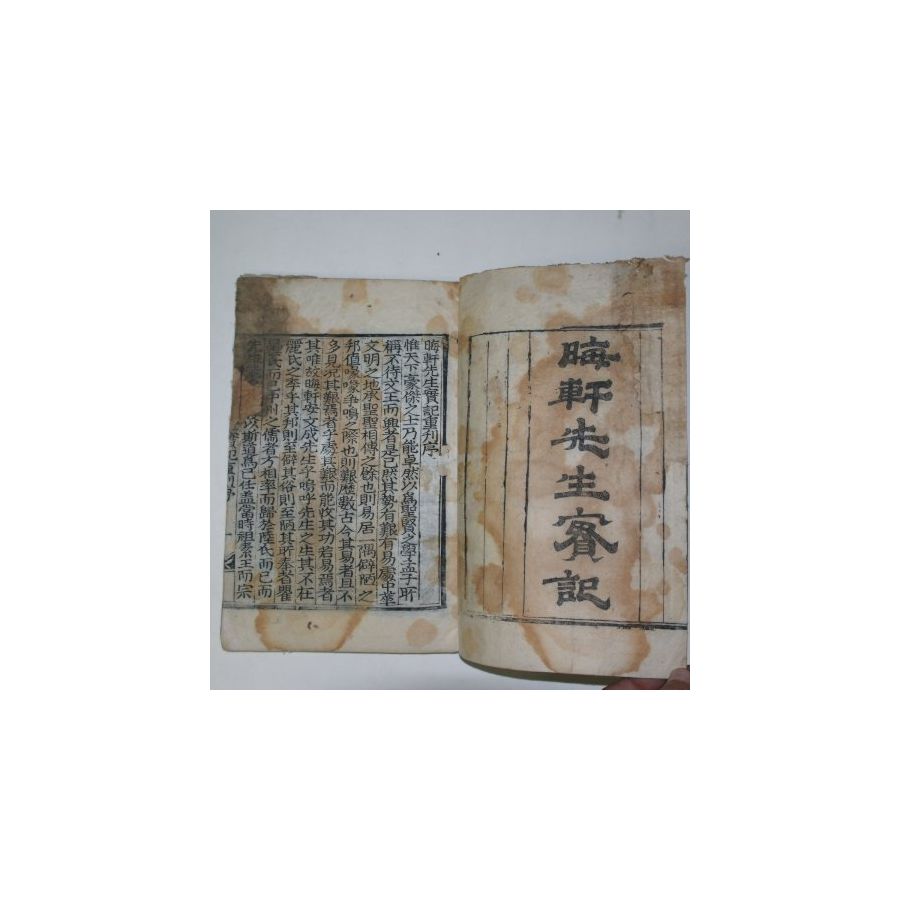 晦軒先生實記
晦軒先生實記重刋序
惟天下豪傑之士乃能卓然以爲聖賢之學孟子所
稱不待文王而興者是已然其勢有艱有易處中華
文明之地承聖聖相傳之餘也則易居一隅僻陋之
邦値喙喙爭鳴之際也則艱歷數古今其易者且不
多見况其艱焉者乎處其艱而能收其功若易焉者
其唯故晦軒安文成先生乎嗚呼先生之生其不在
麗氏之季乎其邦則至僻其俗則至陋其所奉者瞿
曇氏而已中州之儒者方相率而歸於陸氏而已而
斯道爲己任孟當時祖素王而宗